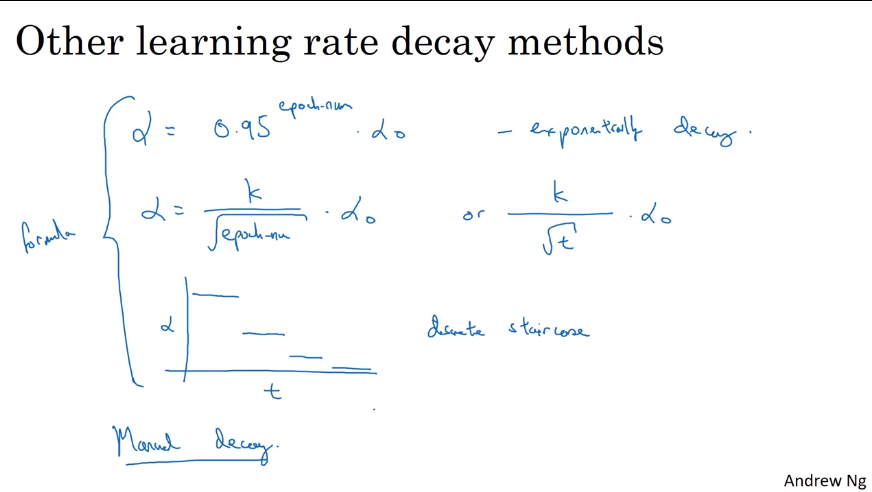 Other learning rate decay methods
α = 0.95^epoch-num · α₀ - exponentially decay.
α = k / √epoch-num · α₀ or k / √t · α₀
formula
α
t
discrete staircase
Manual decay.
Andrew Ng